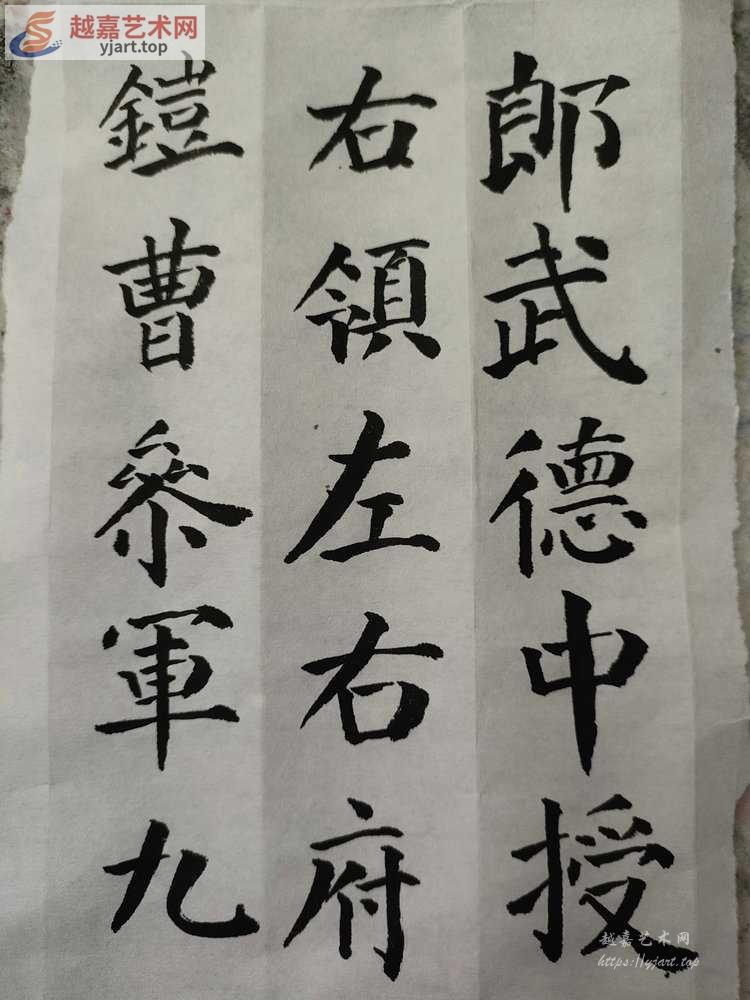 越嘉艺术网
yjart.top
郎武德中授
右領左右府
鎧曹叅軍九
越嘉艺术网
https://yjart.top